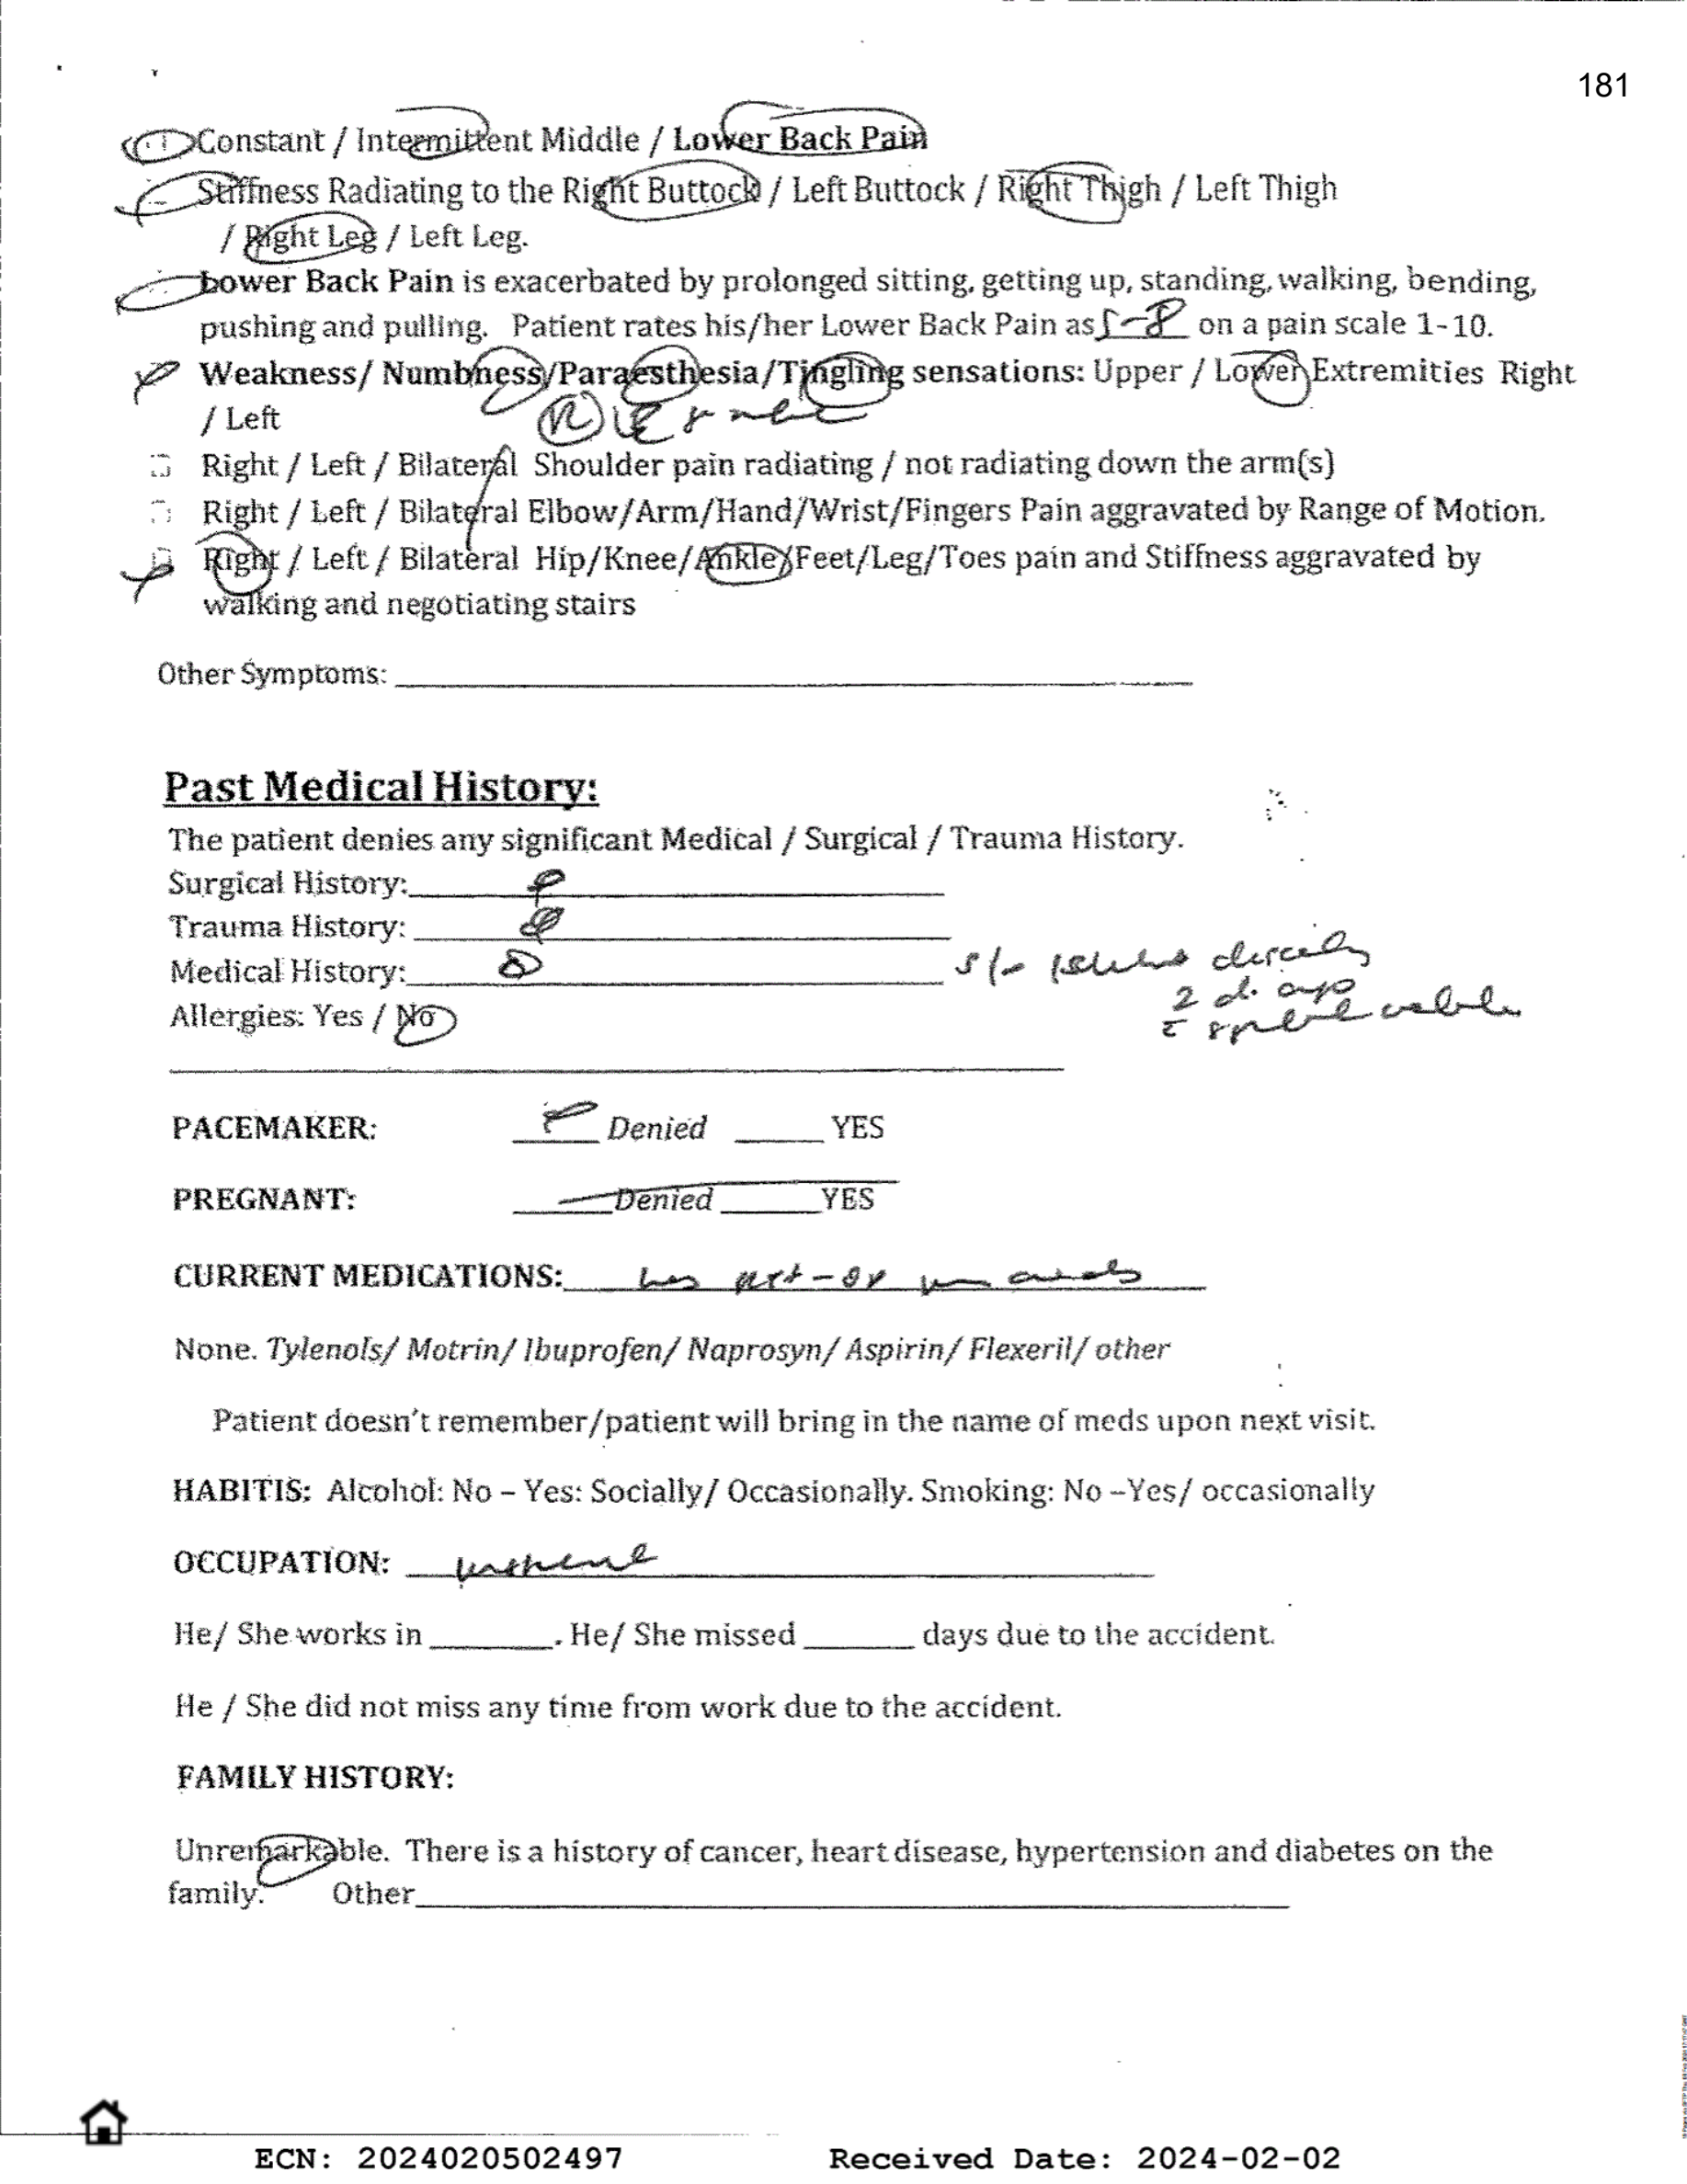 181
Constant / Intermittent Middle / Lower Back Pain
Stiffness Radiating to the Right Buttock / Left Buttock / Right Thigh / Left Thigh
/ Right Leg / Left Leg.
Lower Back Pain is exacerbated by prolonged sitting, getting up, standing, walking, bending,
pushing and pulling. Patient rates his/her Lower Back Pain as 5-8 on a pain scale 1-10.
Weakness/ Numbness/Paraesthesia/Tingling sensations: Upper / Lower Extremities Right
/ Left
Right / Left / Bilateral Shoulder pain radiating / not radiating down the arm(s)
Right / Left / Bilateral Elbow/Arm/Hand/Wrist/Fingers Pain aggravated by Range of Motion.
Right / Left / Bilateral Hip/Knee/Ankle/Feet/Leg/Toes pain and Stiffness aggravated by
walking and negotiating stairs
Other Symptoms:
Past Medical History:
The patient denies any significant Medical / Surgical / Trauma History.
Surgical History:
Trauma History:
Medical History:
Allergies: Yes / No
PACEMAKER: Denied YES
PREGNANT: Denied YES
CURRENT MEDICATIONS:
None. Tylenols/ Motrin/ Ibuprofen/ Naprosyn/ Aspirin/ Flexeril/ other
Patient doesn't remember/patient will bring in the name of meds upon next visit.
HABITIS: Alcohol: No – Yes: Socially/ Occasionally. Smoking: No –Yes/ occasionally
OCCUPATION:
He/ She works in . He/ She missed days due to the accident.
He / She did not miss any time from work due to the accident.
FAMILY HISTORY:
Unremarkable. There is a history of cancer, heart disease, hypertension and diabetes on the
family. Other
ECN: 2024020502497 Received Date: 2024-02-02